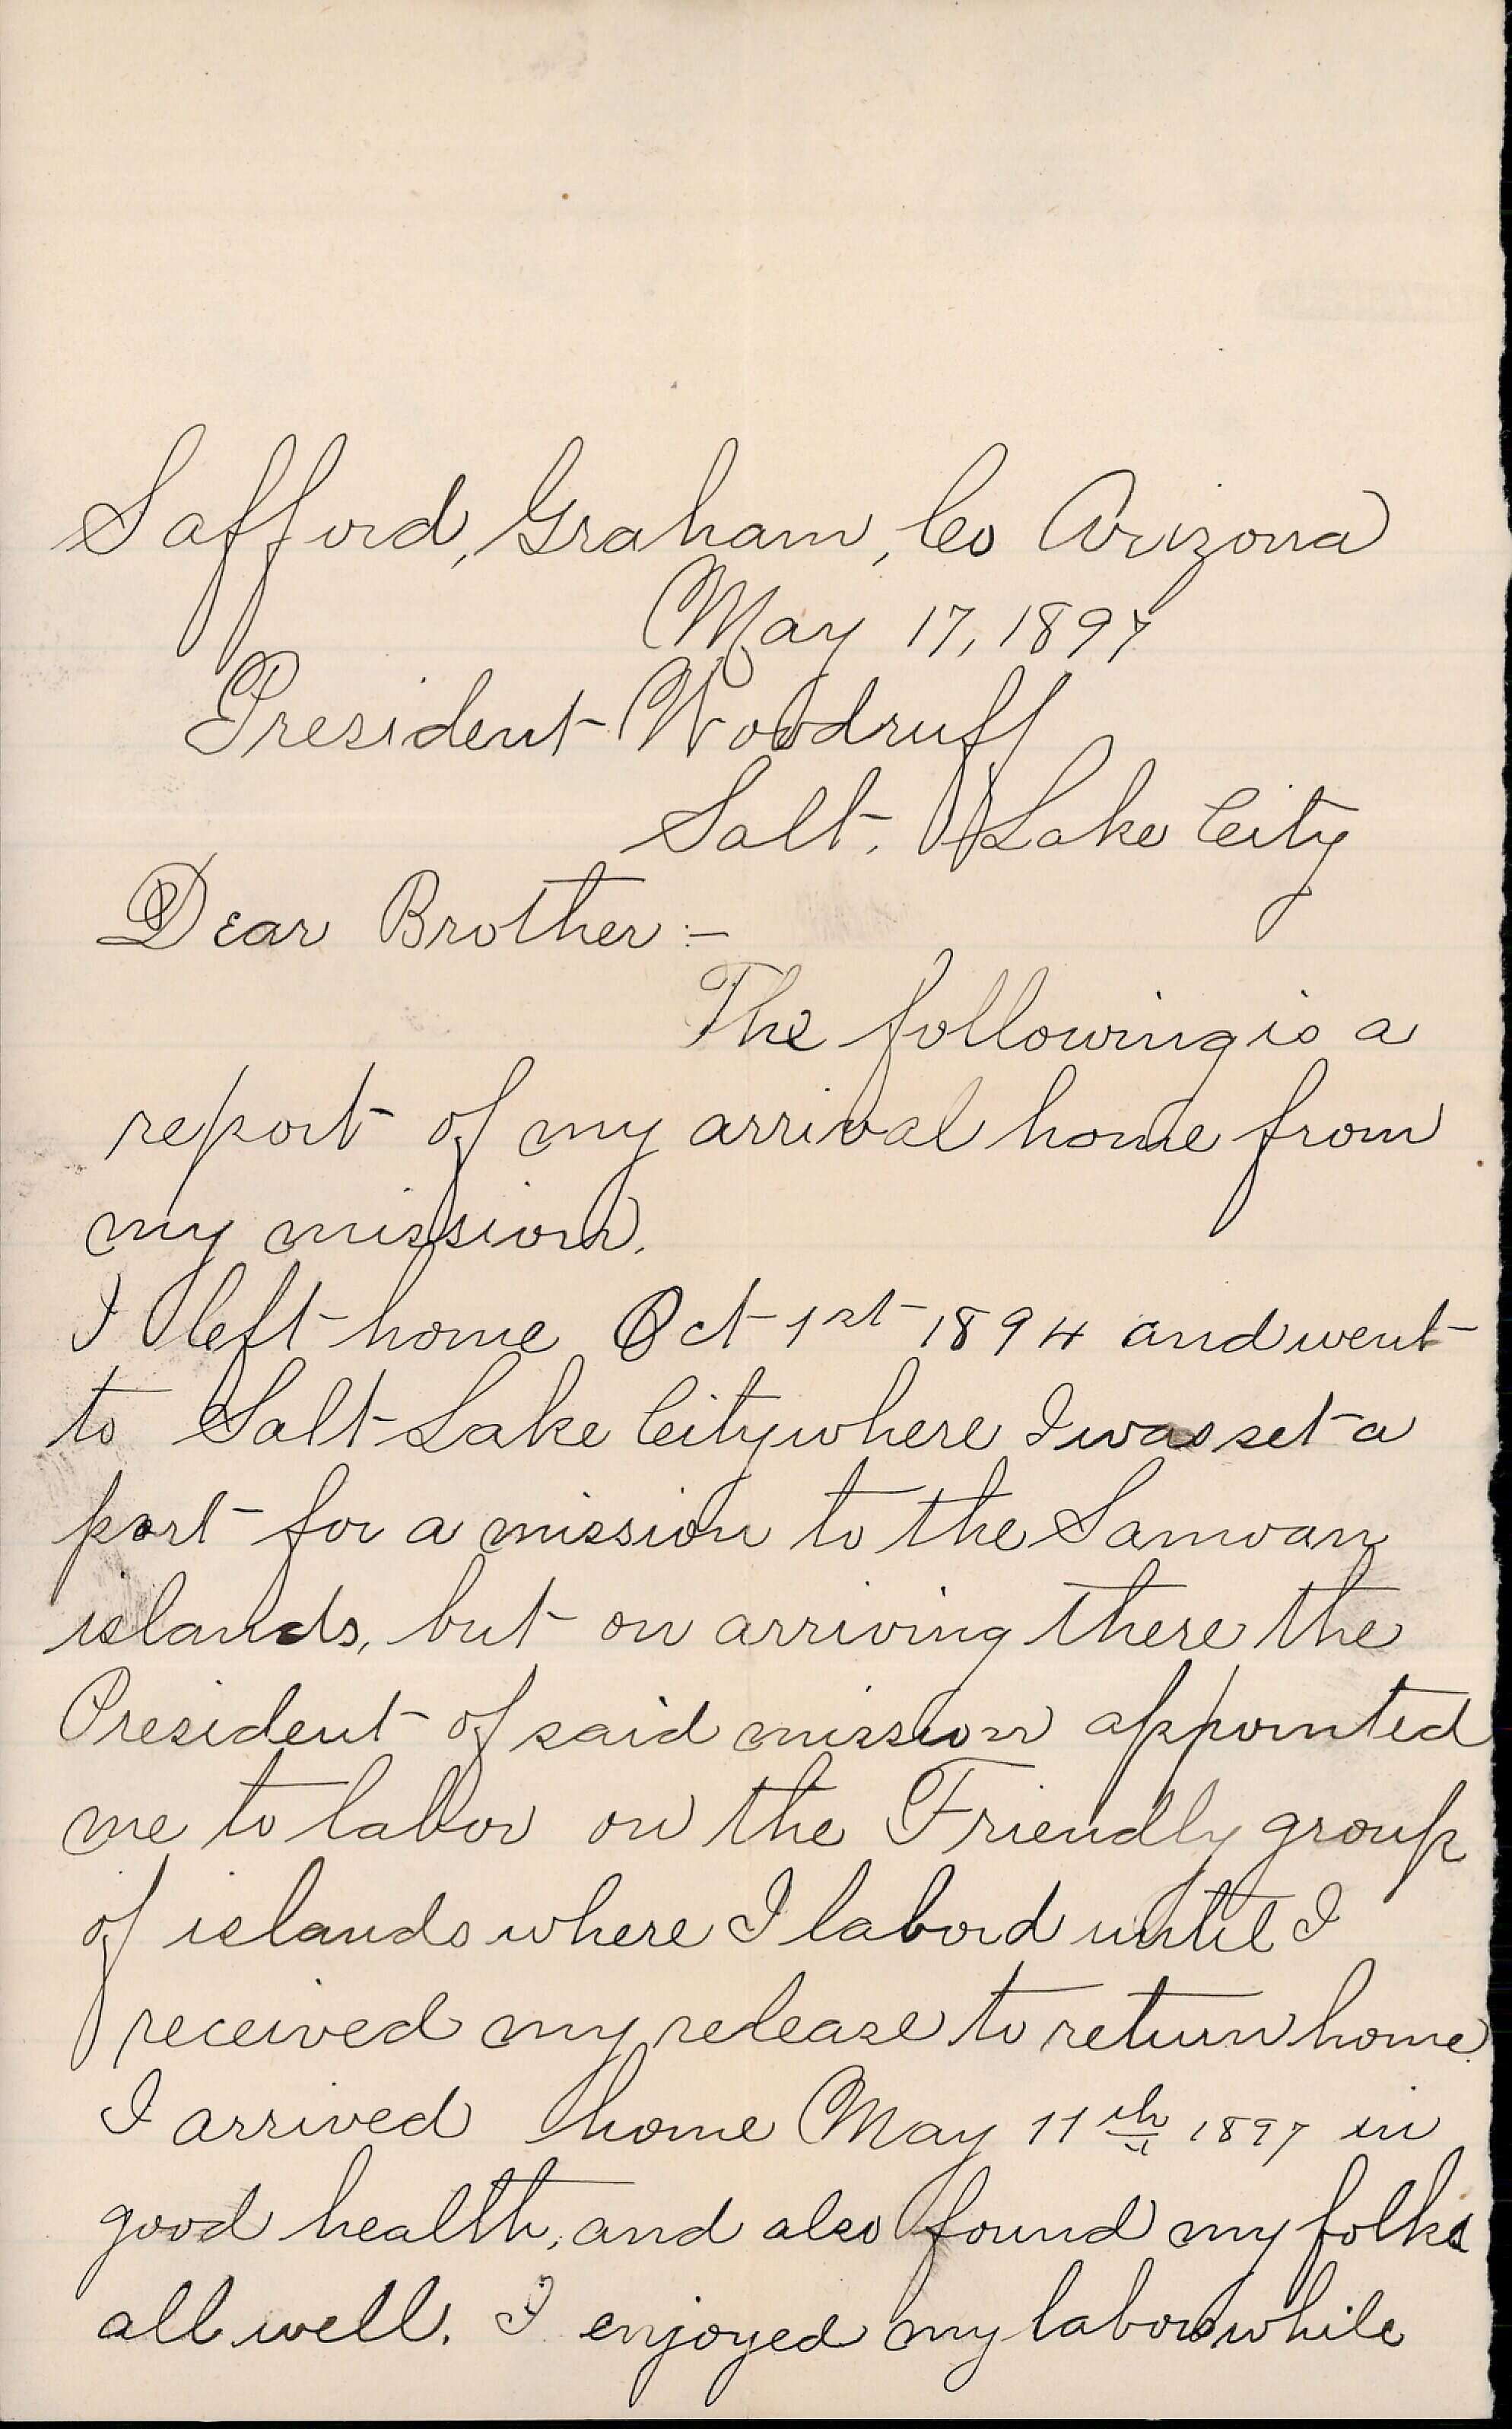 Safford, Graham, Co Arizona
May 17, 1897
President Woodruff
Salt, Lake City
Dear Brother:-
The following is a
report of my arrival home from
my mission.
I left home Oct 1st 1894 and went
to Salt Lake City where I was set a
part for a mission to the Samoan
islands, but on arriving there the
President of said mission appointed
me to labor on the Friendly group
of islands where I labord until I
received my release to return home.
I arrived home May 11th 1897 in
good health, and also found my folks
all well. I enjoyed my labors while